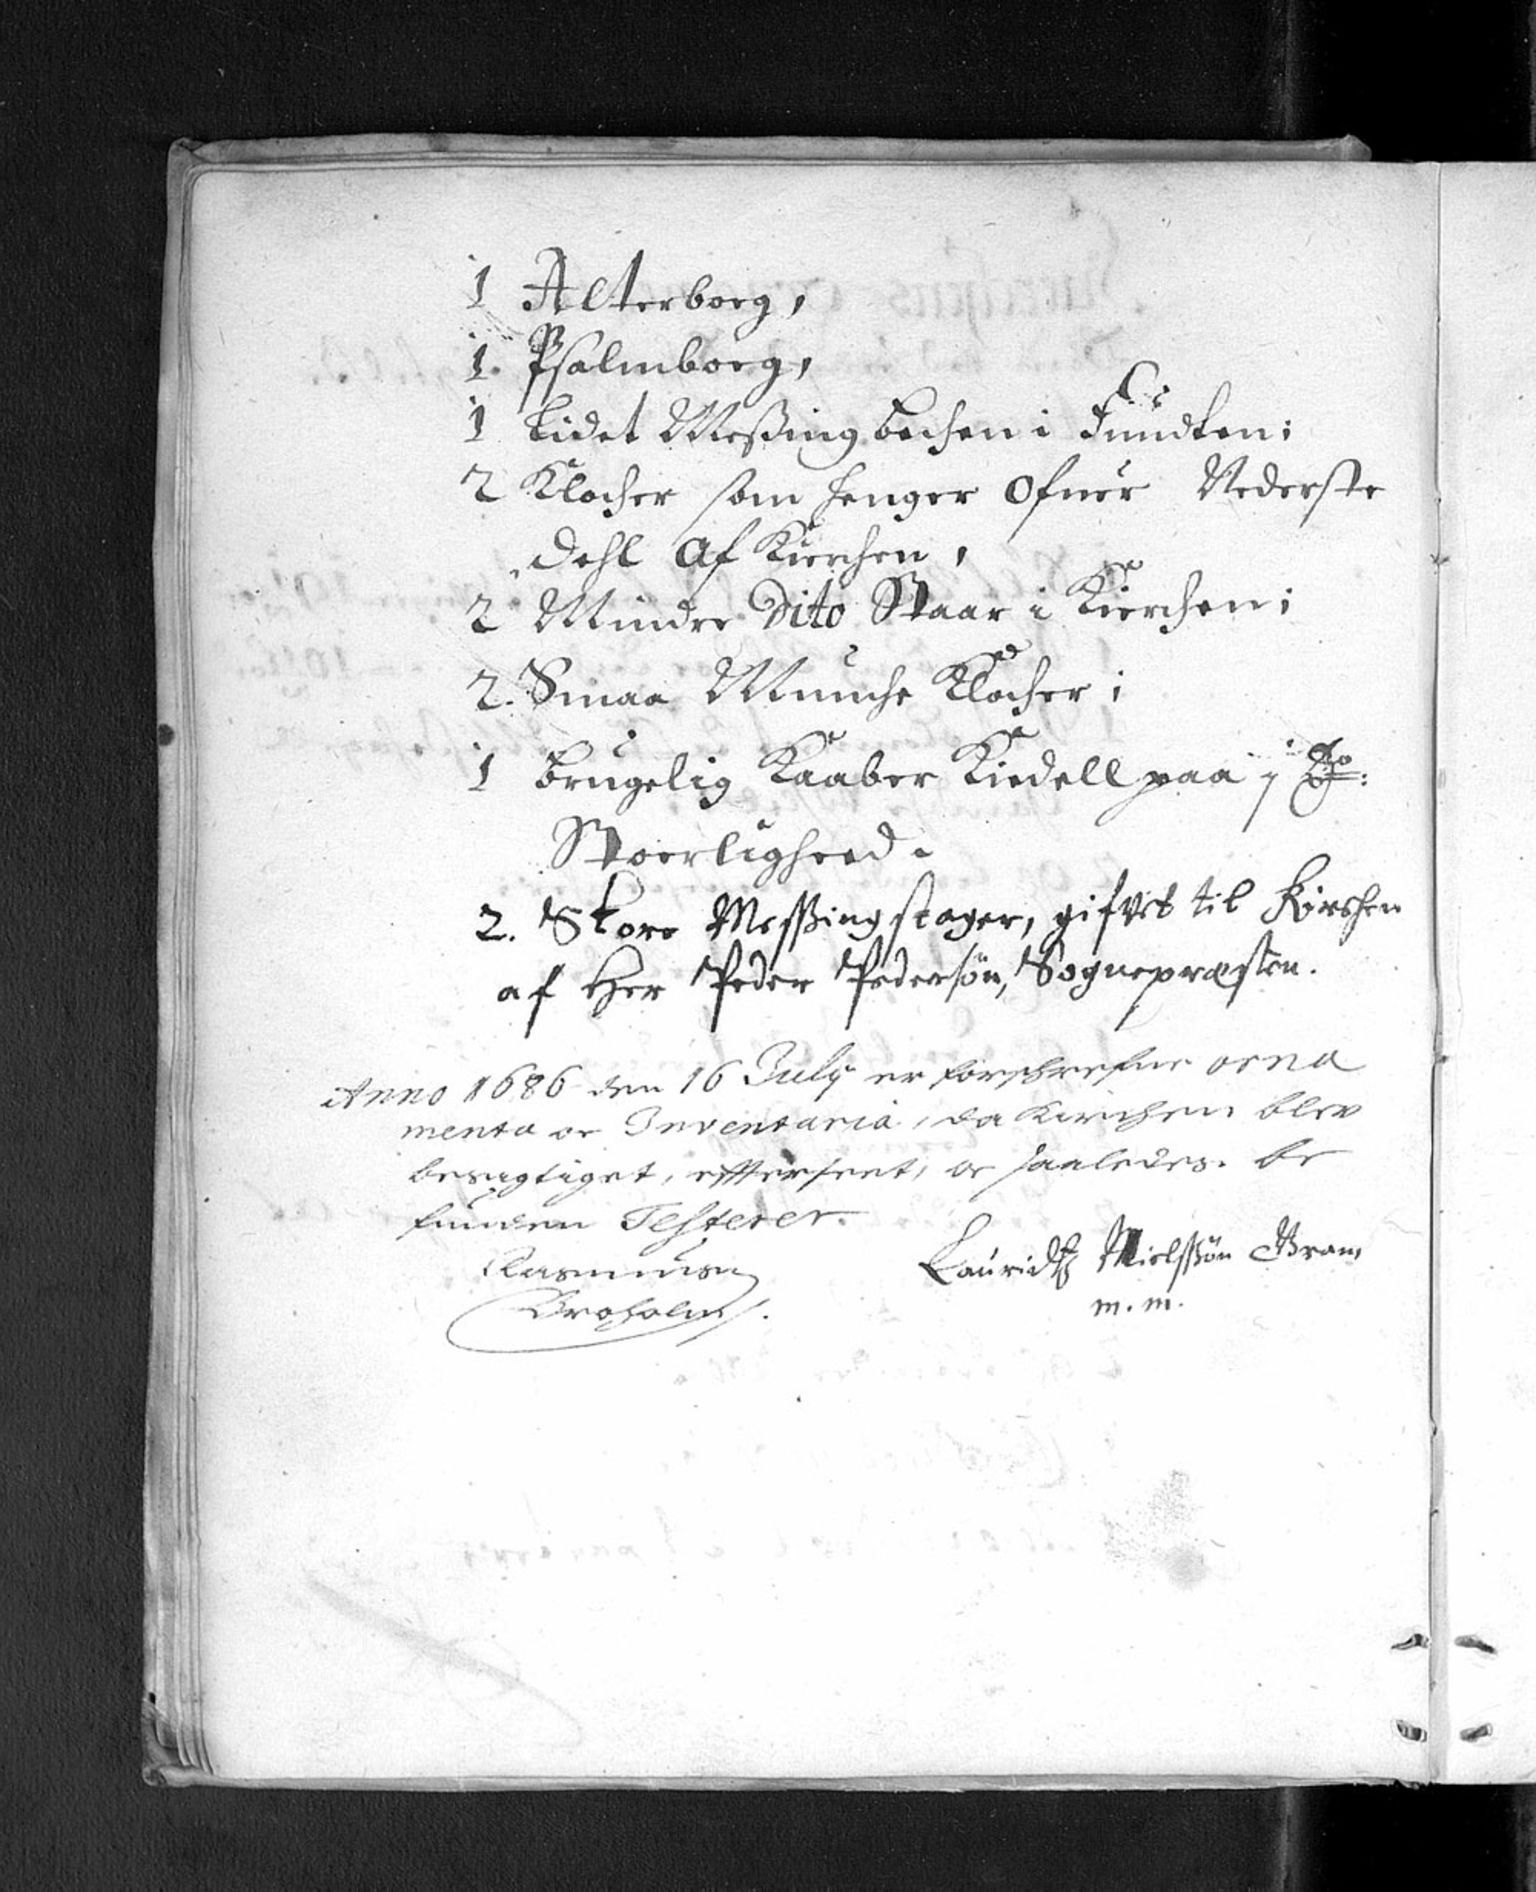 1 Alterboeg,
1. Psalmboeg,
1 Lidet Messing bechen i Funndten;
2 Klocher som henger Ofuer Nederste
Dehl Af Kierchen,
2 Mindre Dito Staar i Kierchen;
2. Smaa Munche Klocher;
1 brugelig Kaaber Kiedell paa j
Stoerligheed.
2. Store Messsing stager, gifvet til Kirchen
af Her Peder Pedersøn, Sognepræsten.
Anno 1686 den 16 July er forschrefne orna
menta oc Inventaria, da Kirchen blev
besigtiget, effterseet, oc saaledes be
funden Testerer.
Rasmusen
Broholm
Lauridtz Nielssøn Bram
m. m.